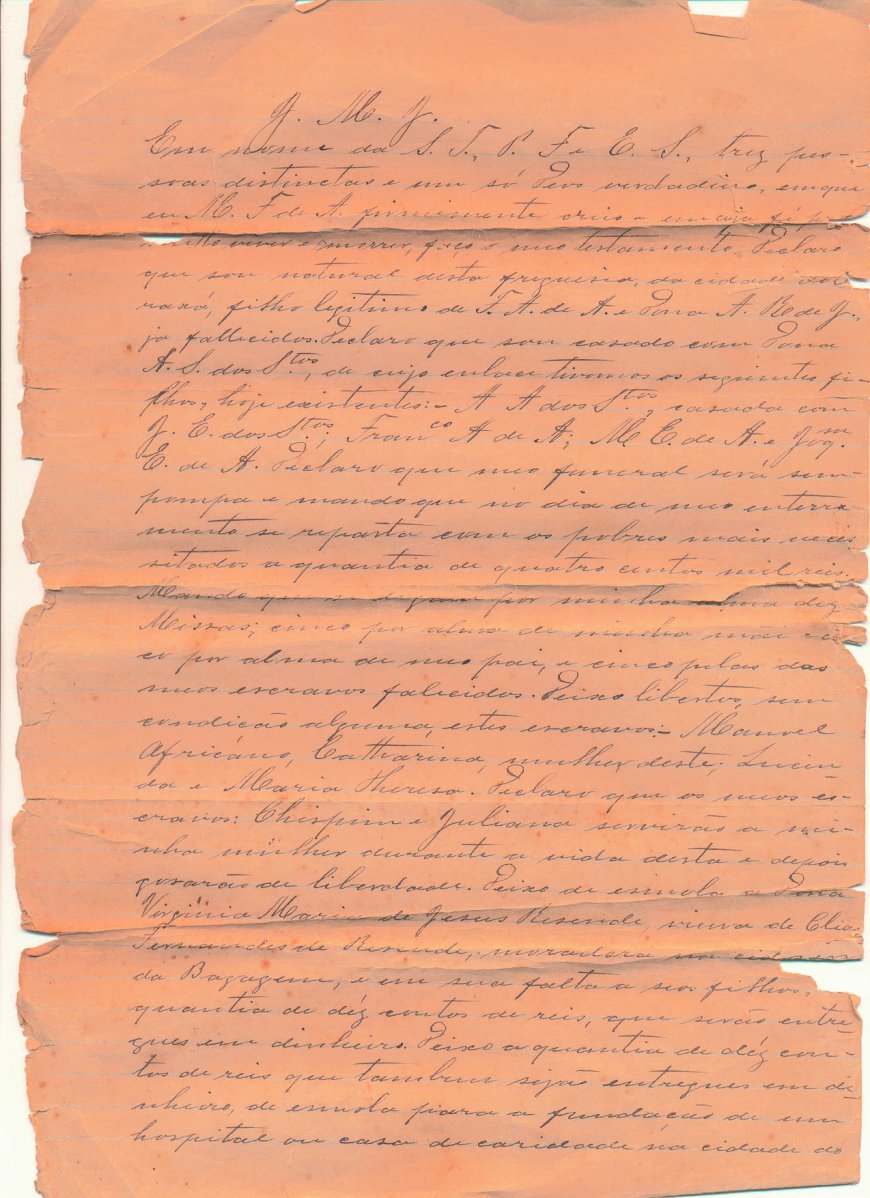 J. M. J.
Em nome da S. T., P. F e E. S., trez pes-
soas distinctas e um só Deos verdadeiro, em que
eu M. F de A. firmemente creio e em cuja fé
viver e morrer, faço o meo testamento. Declaro
que sou natural desta freguesia, da cidade do A
raxá, filho legitimo de F. A. de A. e Dona A. R de J.,
ja fallecidos. Declaro que sou casado com Dona
A. S. dos Stos, de cujo enlace tivemos os seguintes fi-
lhos, hoje existentes:- A A dos Stos, casada com
J. E. dos Stos; Franco A de A; M E. de A. e Joqm
E. de A. Declaro que meo funeral será sem
pompa e mando que no dia de meo enterra-
mento se reparta com os pobres mais neces
sitados a quantia de quatro centos mil reis.
Mando que se digam por minha alma dez
Missas; cinco por alma de minha mai cin
co por alma de meo pai, e cinco pelas dos
meos escravos falecidos. Deixo libertos, sem
condicão alguma, estes escravos:- Manoel
Africano, Catharina, mulher deste; Lucin
da e Maria Thereza. Declaro que os meos es-
cravos: Chispim e Juliana servirão a mi-
nha mulher durante a vida desta e depois
gosarão de liberdade. Deixo de esmola a Dona
Virginia Maria de Jesus Resende, viuva de Elias
Fernandes de Resende, moradora na cidade
da Bagagem, e em sua falta a seos filhos,
quantia de déz contos de reis, que serão entre-
gues em dinheiro. Deixo a quantia de déz con-
tos de reis que tambem sejão entregues em di-
nheiro, de esmola para a fundação de um
hospital ou casa de caridade na cidade do